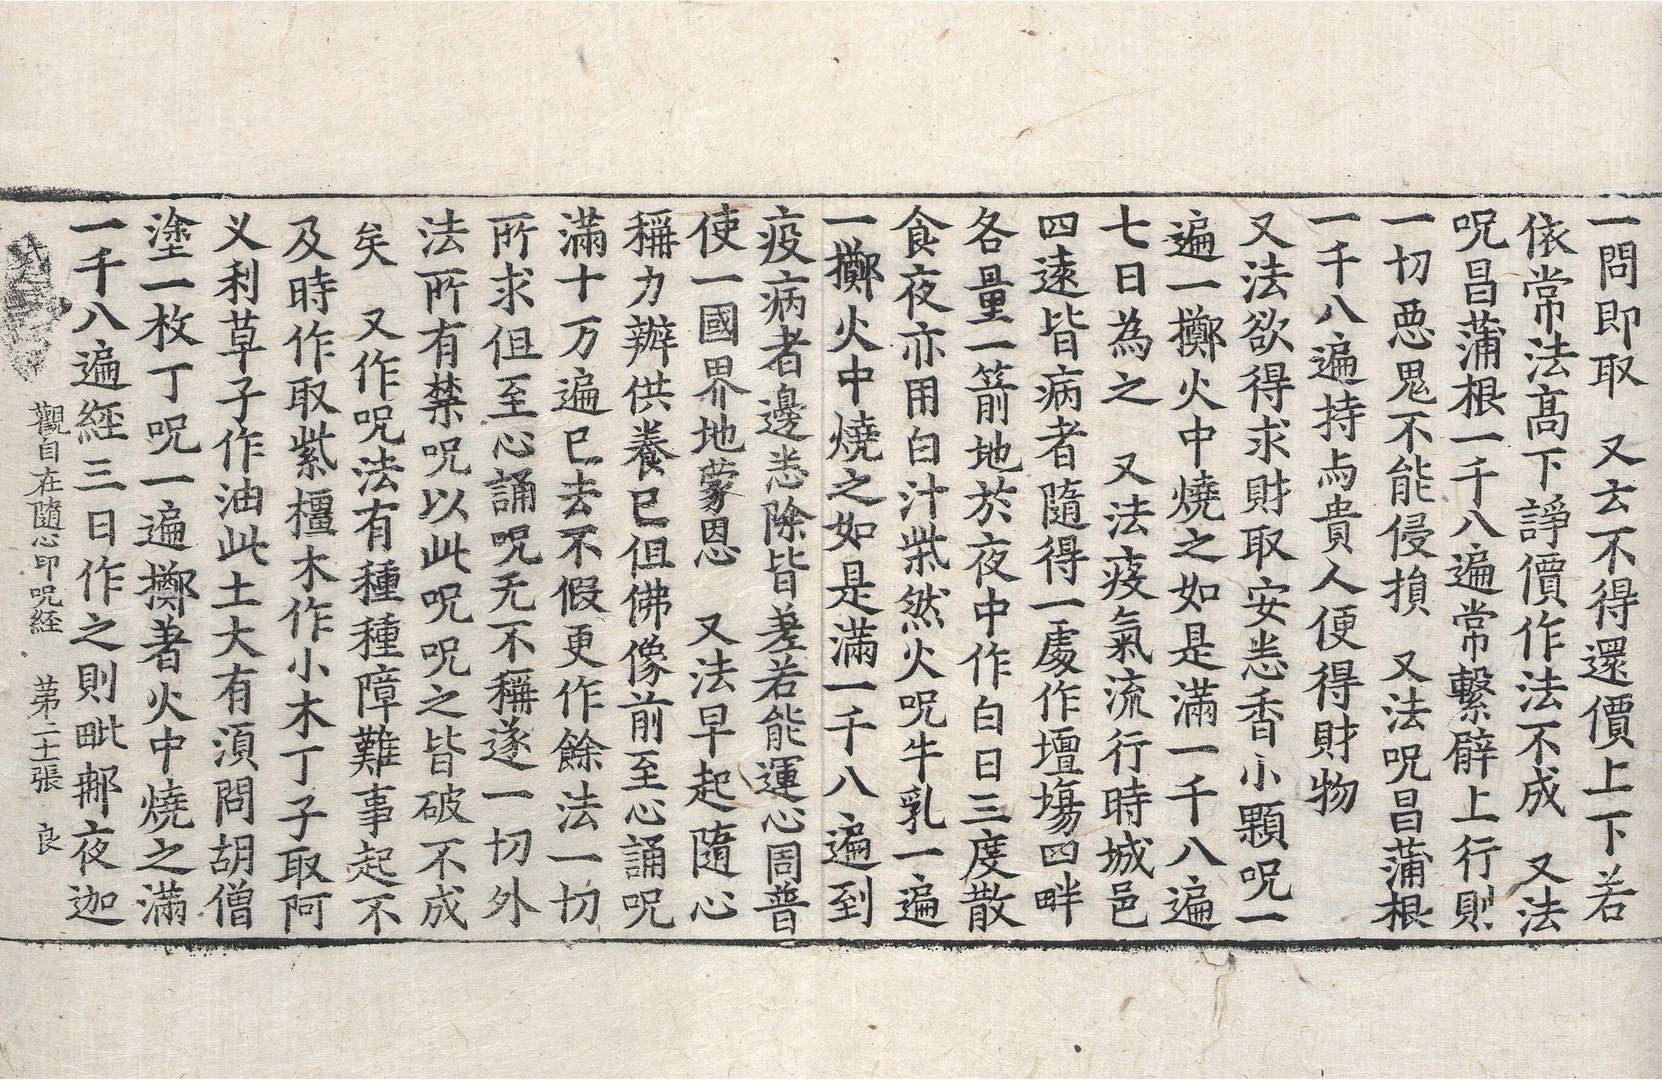 一問即取　又云不得還價上下若
依常法高下諍價作法不成　又法
呪昌蒲根一千八遍常繫臂上行則
一切惡鬼不能侵損　又法呪昌蒲根
一千八遍持与貴人便得財物
又法欲得求財取安悉香小顆呪一
遍一擲火中燒之如是滿一千八遍
七日為之　又法疫氣流行時城邑
四遠皆病者隨得一處作壇塲四畔
各量一箭地於夜中作白日三度散
食夜亦用白汁柴然火呪牛乳一遍
一擲火中燒之如是滿一千八遍到
疫病者邊悉除皆差若能運心周普
使一國界地蒙恩　又法早起隨心
稱力辦供養已但佛像前至心誦呪
滿十万遍已去不假更作餘法一切
所求但至心誦呪无不稱遂一切外
法所有禁呪以此呪呪之皆破不成
矣　又作呪法有種種障難事起不
及時作取紫橿木作小木丁子取阿
义利草子作油此土大有湏問胡僧
塗一枚丁呪一遍擲著火中燒之滿
一千八遍經三日作之則毗那夜迦
觀自在隨心印呪経　第二十張　良